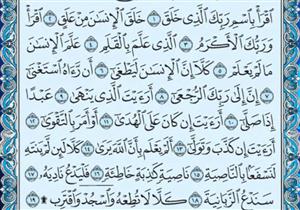 ٱقۡرَأۡ بِٱسۡمِ رَبِّكَ ٱلَّذِي خَلَقَ ١ خَلَقَ ٱلۡإِنسَٰنَ مِنۡ عَلَقٍ ٢ ٱقۡرَأۡ
وَرَبُّكَ ٱلۡأَكۡرَمُ ٣ ٱلَّذِي عَلَّمَ بِٱلۡقَلَمِ ٤ عَلَّمَ ٱلۡإِنسَٰنَ
مَا لَمۡ يَعۡلَمۡ ٥ كَلَّآ إِنَّ ٱلۡإِنسَٰنَ لَيَطۡغَىٰٓ ٦ أَن رَّءَاهُ ٱسۡتَغۡنَىٰٓ
٧ إِنَّ إِلَىٰ رَبِّكَ ٱلرُّجۡعَىٰٓ ٨ أَرَءَيۡتَ ٱلَّذِي يَنۡهَىٰ ٩ عَبۡدًا
إِذَا صَلَّىٰٓ ١٠ أَرَءَيۡتَ إِن كَانَ عَلَى ٱلۡهُدَىٰٓ ١١ أَوۡ أَمَرَ بِٱلتَّقۡوَىٰٓ ١٢
أَرَءَيۡتَ إِن كَذَّبَ وَتَوَلَّىٰٓ ١٣ أَلَمۡ يَعۡلَم بِأَنَّ ٱللَّهَ يَرَىٰ ١٤ كَلَّا لَئِن لَّمۡ يَنتَهِ
لَنَسۡفَعَۢا بِٱلنَّاصِيَةِ ١٥ نَاصِيَةٖ كَٰذِبَةٍ خَاطِئَةٖ ١٦ فَلۡيَدۡعُ نَادِيَهُۥ ١٧
سَنَدۡعُ ٱلزَّبَانِيَةَ ١٨ كَلَّا لَا تُطِعۡهُ وَٱسۡجُدۡۤ وَٱقۡتَرِب۩ ١٩